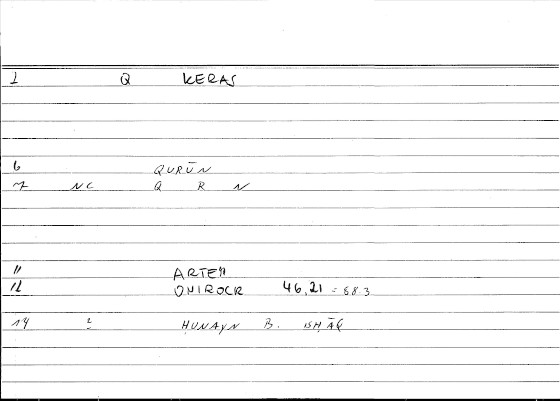 1 Q KERAS
6 QURŪN
7 NC Q R N
11 ARTEM
12 ONIROCR 46,21 = 88.3
14 2 HUNAYN B. ISḤĀQ